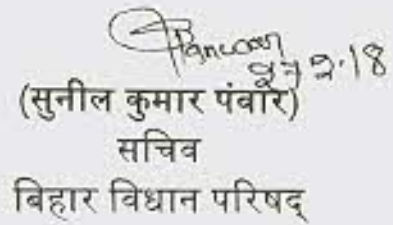 Panwar
27.2.18
(सुनील कुमार पंवार)
सचिव
बिहार विधान परिषद्